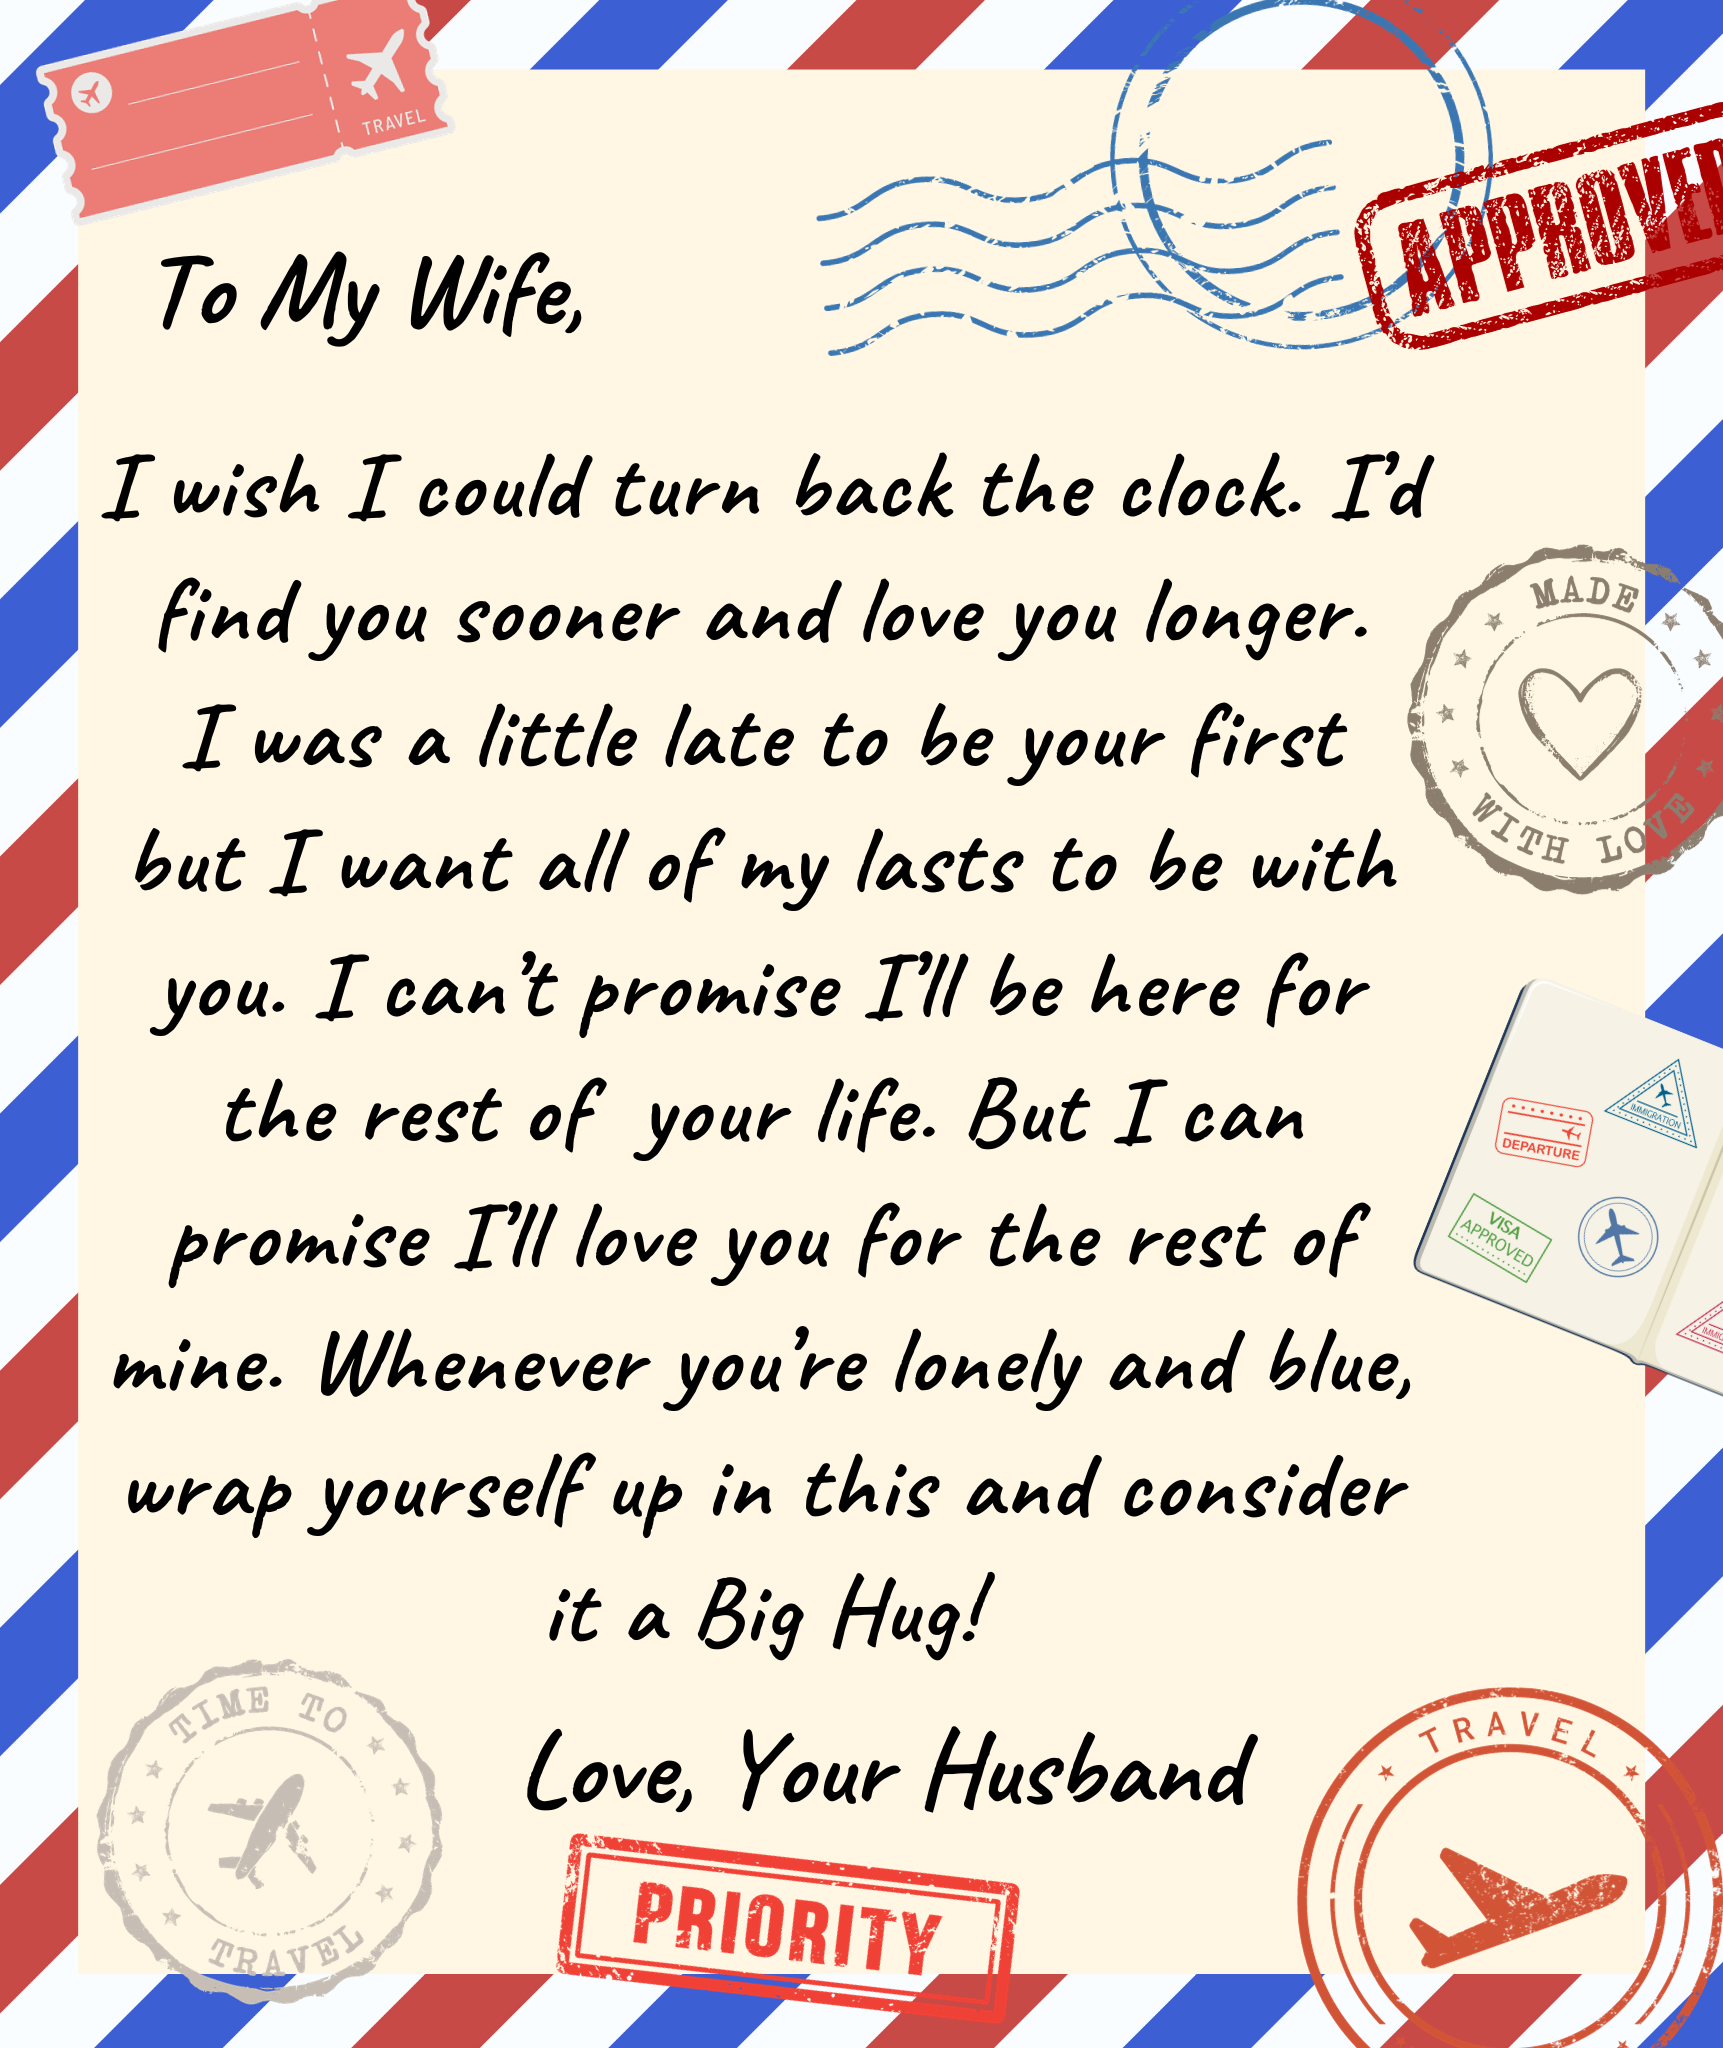 TRAVEL
APPROVED
To My Wife,
I wish I could turn back the clock. I'd
find you sooner and love you longer.
I was a little late to be your first
but I want all of my lasts to be with
you. I can't promise I'll be here for
the rest of  your life. But I can
promise I'll love you for the rest of
mine. Whenever you're lonely and blue,
wrap yourself up in this and consider
it a Big Hug!
Love, Your Husband
MADE
WITH LOVE
IMMIGRATION
DEPARTURE
VISA
APPROVED
TIME TO
TRAVEL
PRIORITY
TRAVEL